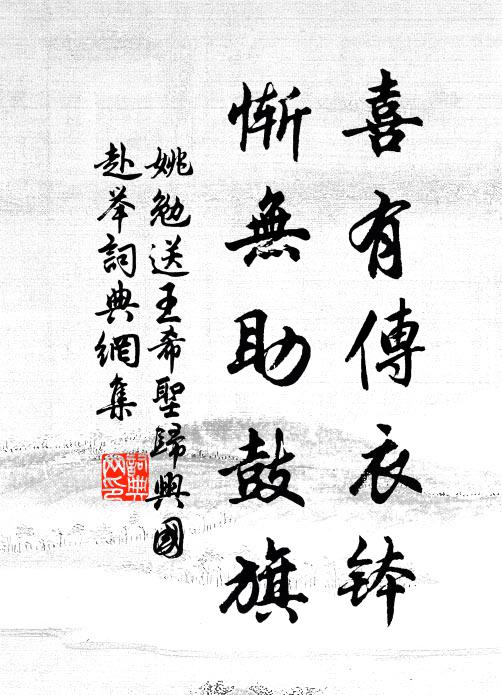 喜有傳衣鉢
慚無助鼓旗
姚勉送王希聖歸興國
赴举詞典網集
詞典網印